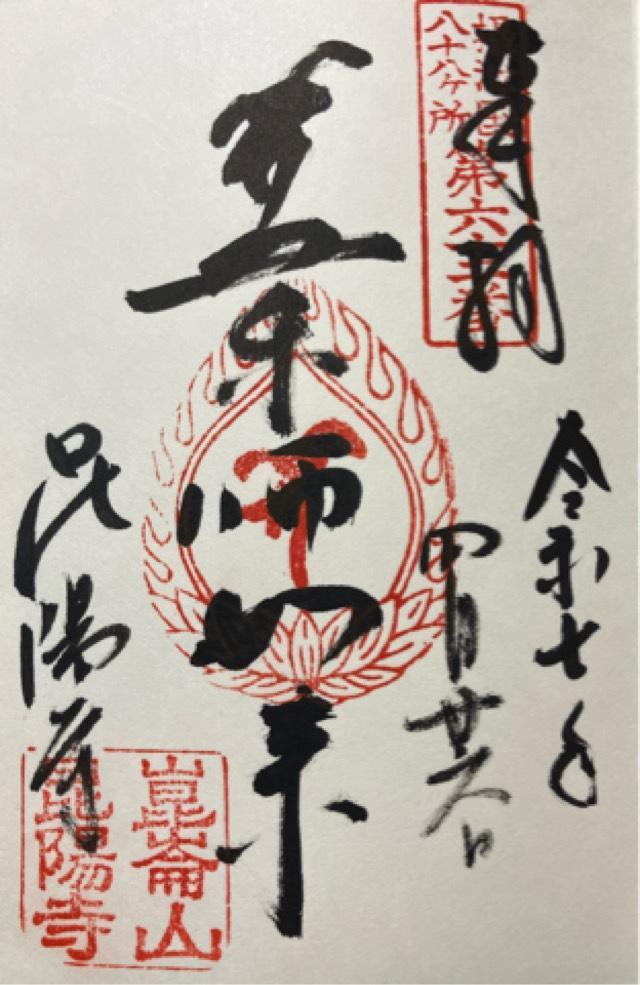 奉拝
攝津國
八十八ヶ所
第六十三番
令和七年
四月廿六日
薬師如来
昆陽寺
崑崙山
昆陽寺